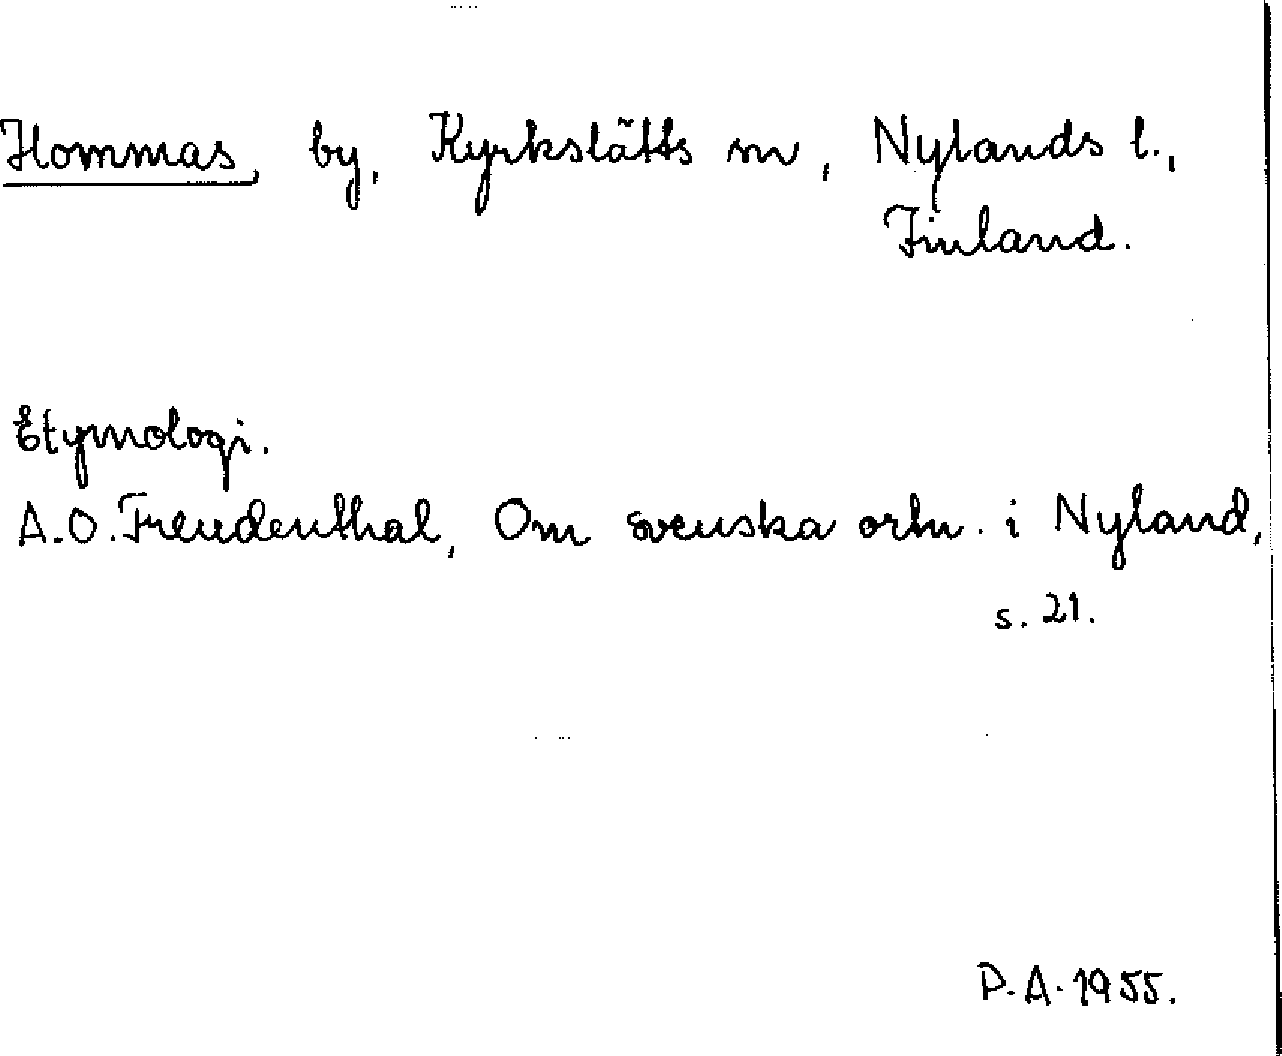 Hommas, by, Kyrkslätts sn, Nylands l.,
Finland.
Etymologi.
A.O. Freudenthal, Om svenska ortn. i Nyland,
s. 21.
P.A. 1955.